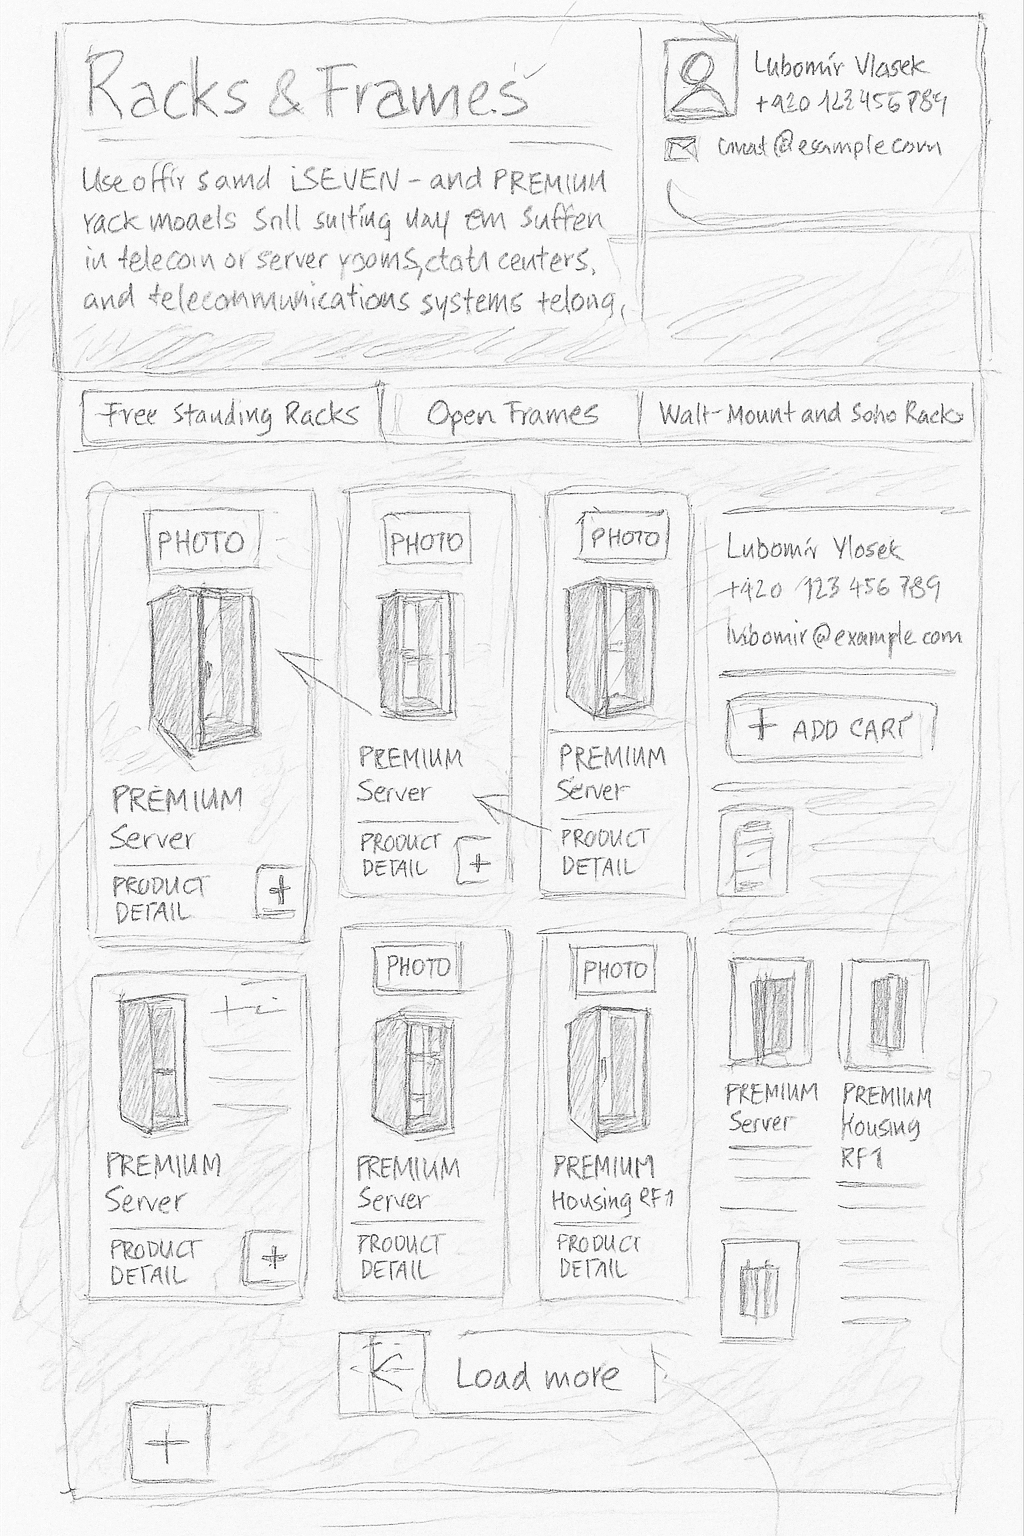 Racks & Frames
Lubomír Vlasek
+420 123 456 789
@example.com
Use offir s amd iSEVEN - and PREMIUM
rack moaels Srill suiting uay em Suffen
in telecoin or server yooms, ctatu centers,
and telecommunications systems telong,
Free Standing Racks
Open Frames
Walt-Mount and Soho Racks
PHOTO
PREMIUM
Server
PRODUCT
DETAIL
+
PHOTO
PREMIUM
Server
PRODUCT
DETAIL
+
PHOTO
PREMIUM
Server
PRODUCT
DETAIL
Lubomír Vlosek
+420 123 456 789
lubomir@example.com
+ ADD CART
PREMIUM
Server
PRODUCT
DETAIL
+
PHOTO
PREMIUM
Server
PRODUCT
DETAIL
PHOTO
PREMIUM
Housing RF1
PRODUCT
DETAIL
PREMIUM
Server
PREMIUM
Housing
RF1
Load more
+